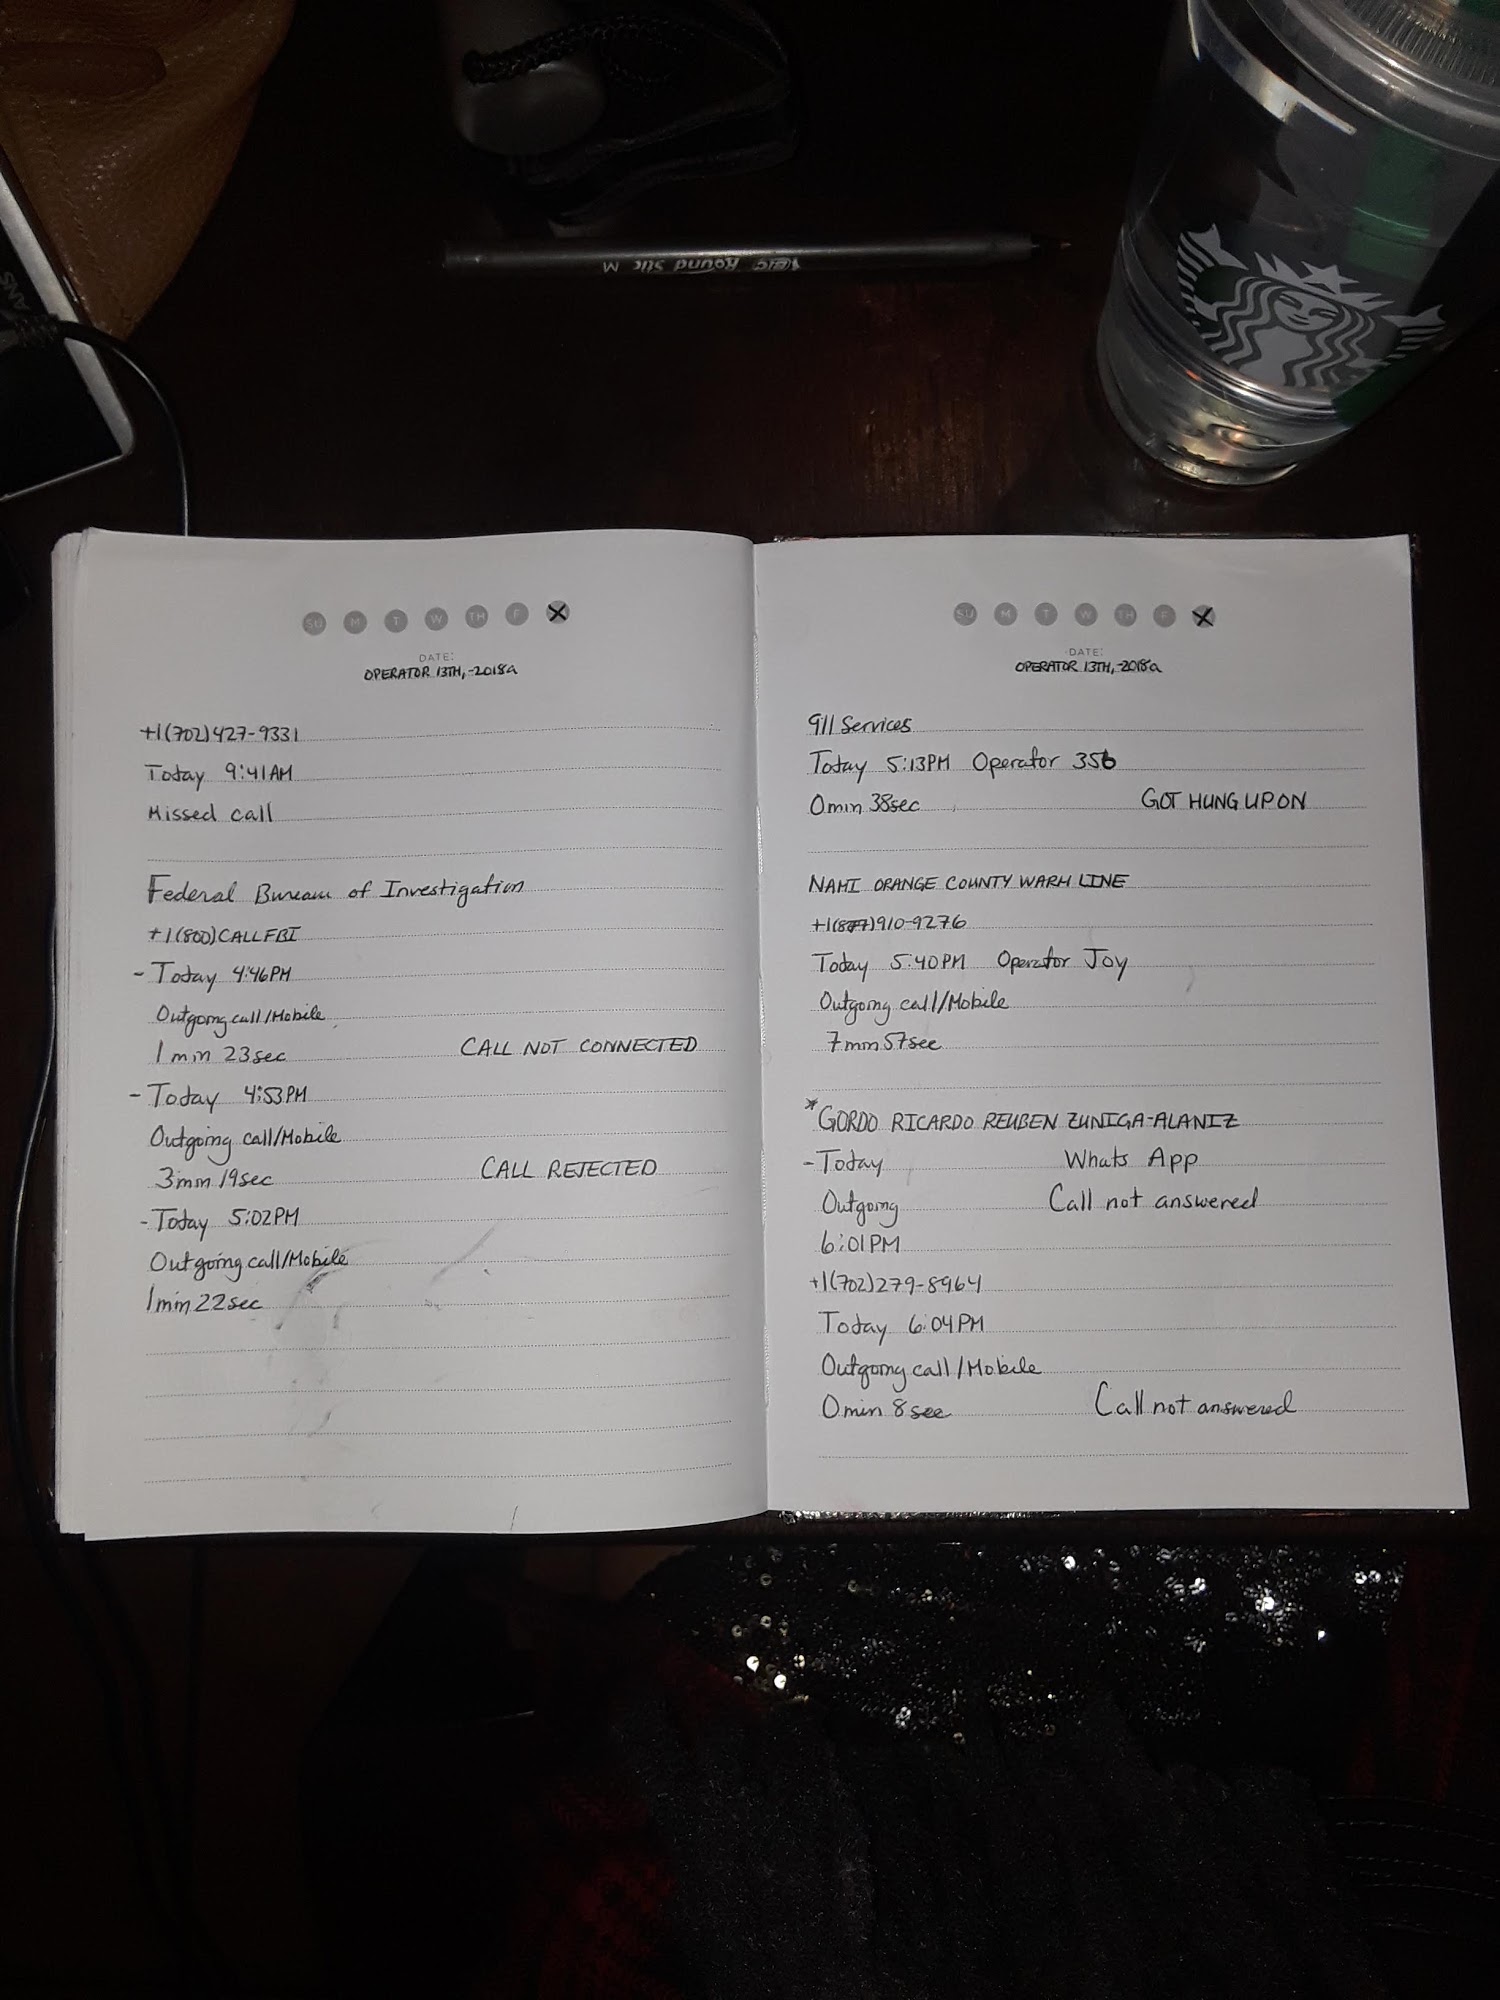 BIC Round Stic M
SU M T W TH F
DATE:
OPERATOR 13TH, -2018a
+1(702)427-9331
Today 9:41AM
Missed call
Federal Bureau of Investigation
+1(800)CALLFBI
- Today 4:46PM
Outgoing call/Mobile
1 min 23sec CALL NOT CONNECTED
- Today 4:53PM
Outgoing call/Mobile
3min 19sec CALL REJECTED
- Today 5:02PM
Outgoing call/Mobile
1min 22sec
SU M T W TH F
DATE:
OPERATOR 13TH, -2018a
911 Services
Today 5:13PM Operator 356
0min 38sec GOT HUNG UP ON
NAMI ORANGE COUNTY WARM LINE
+1(877)910-9276
Today 5:40PM Operator Joy
Outgoing call/Mobile
7min 57sec
*GORDO RICARDO REUBEN ZUNIGA-ALANIZ
- Today Whats App
Outgoing Call not answered
6:01PM
+1(702)279-8964
Today 6:04PM
Outgoing call/Mobile
0min 8sec Call not answered